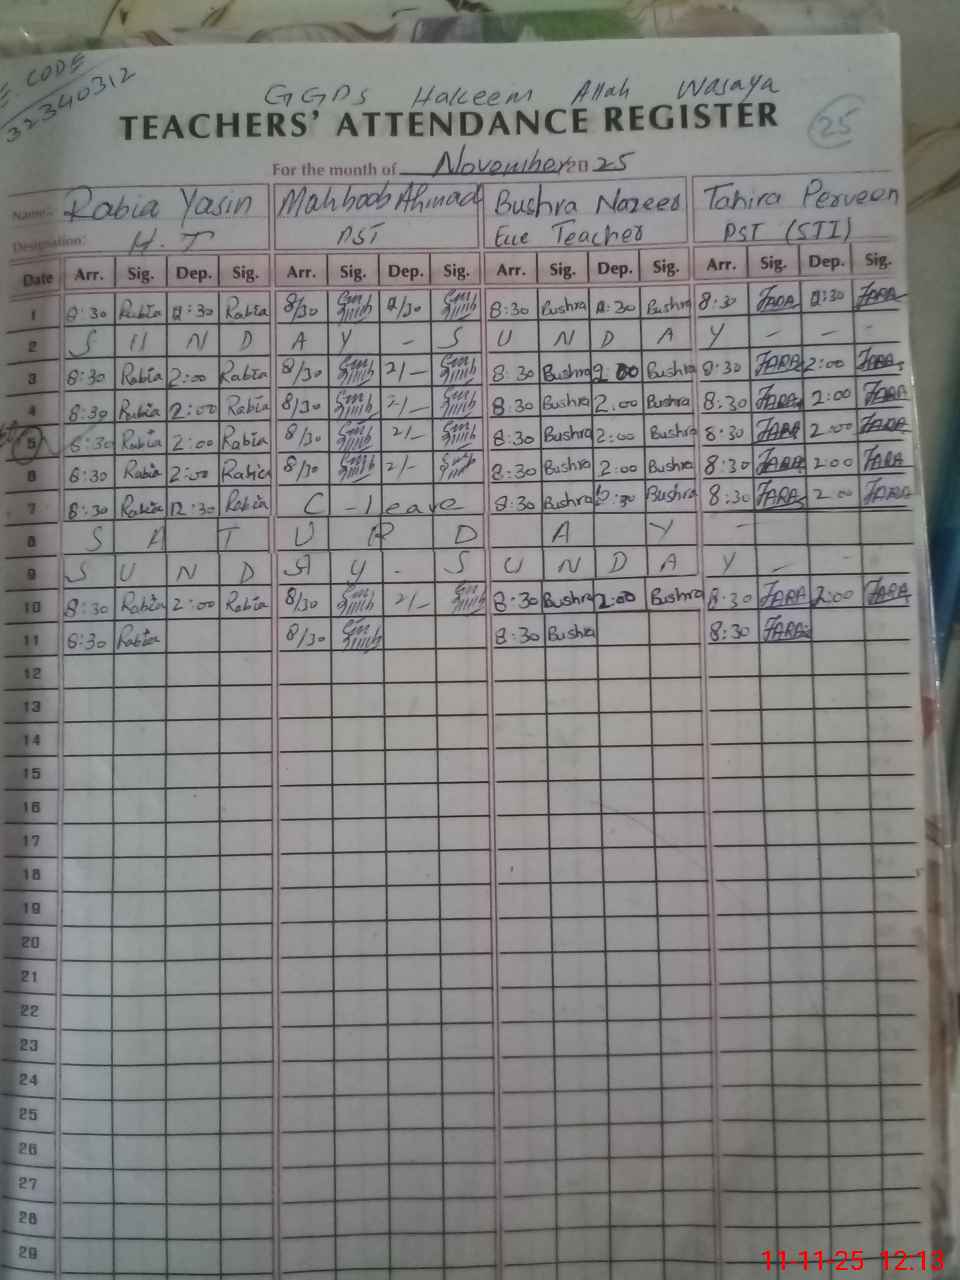 E. CODE
32340312
GGPS Hakeem Allah Wasaya
TEACHERS' ATTENDANCE REGISTER
25
For the month of November 20 25
Name:- Rabia Yasin Mahboob Ahmad Bushra Nazeer Tahira Perveen
Designation: H.T PST Ece Teacher PST (STI)
Date Arr. Sig. Dep. Sig. Arr. Sig. Dep. Sig. Arr. Sig. Dep. Sig. Arr. Sig. Dep. Sig.
1 8:30 Rabia 12:30 Rabia 8/30 12/30 8:30 Bushra 12:30 Bushra 8:30 12:30
2 S U N D A Y - S U N D A Y - - -
3 8:30 Rabia 2:00 Rabia 8/30 2/- 8:30 Bushra 2:00 Bushra 8:30 2:00
4 8:30 Rabia 2:00 Rabia 8/30 2/- 8:30 Bushra 2:00 Bushra 8:30 2:00
5 8:30 Rabia 2:00 Rabia 8/30 2/- 8:30 Bushra 2:00 Bushra 8:30 2:00
6 8:30 Rabia 2:00 Rabia 8/30 2/- 8:30 Bushra 2:00 Bushra 8:30 2:00
7 8:30 Rabia 12:30 Rabia C - leave 8:30 Bushra 12:30 Bushra 8:30 2:00
8 S A T U R D A Y -
9 S U N D A Y - S U N D A Y - -
10 8:30 Rabia 2:00 Rabia 8/30 2/- 8:30 Bushra 2:00 Bushra 8:30 2:00
11 8:30 Rabia 8/30 8:30 Bushra 8:30
12
13
14
15
16
17
18
19
20
21
22
23
24
25
26
27
28
29
11-11-25 12.13